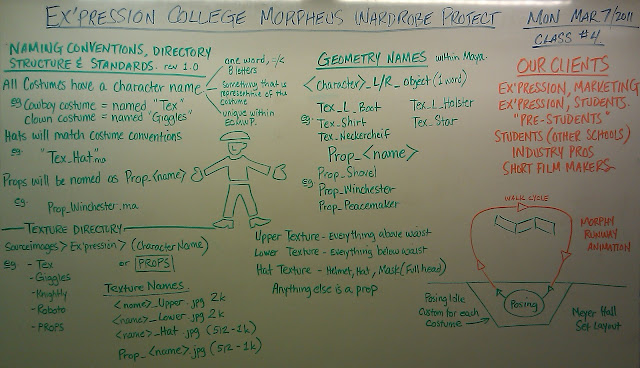 EX'PRESSION COLLEGE MORPHEUS WARDROBE PROJECT
MON MAR 7/2011
CLASS #4
NAMING CONVENTIONS, DIRECTORY
STRUCTURE & STANDARDS. rev 1.0
All Costumes have a character name
one word,
8 letters
something that is
representative of the
costume
unique within
ECMWP.
eg Cowboy costume = named "Tex"
clown costume = named "Giggles"
Hats will match costume conventions
eg. "Tex_Hat".ma
Props will be named as Prop_<name>
eg. Prop_Winchester.ma
TEXTURE DIRECTORY
Sourceimages > Ex'pression > (Character Name)
or PROPS
eg - Tex
- Giggles
- Knightly
- Roboto
- PROPS
Texture Names.
<name>_Upper.jpg 2k
<name>_Lower.jpg 2k
<name>_Hat.jpg (512-1k)
Prop_<name>.jpg (512-1k)
GEOMETRY NAMES within Maya.
<character>_L/R_object (1 word)
Tex_L_Boot
Tex_L_Holster
eg. Tex_Shirt
Tex_Star
Tex_Neckercheif
Prop_<name>
eg Prop_Shovel
Prop_Winchester
Prop_Peacemaker
Upper Texture - Everything above waist
Lower Texture - Everything below waist
Hat Texture - Helmet, Hat, Mask (Full head)
Anything else is a prop
OUR CLIENTS
EX'PRESSION, MARKETING
EX'PRESSION, STUDENTS.
"PRE-STUDENTS"
STUDENTS (OTHER SCHOOLS)
INDUSTRY PROS
SHORT FILM MAKERS.
WALK CYCLE
MORPHY
RUNWAY
ANIMATION
Posing Idle
Custom for each
Costume
Posing
Meyer Hall
Set Layout